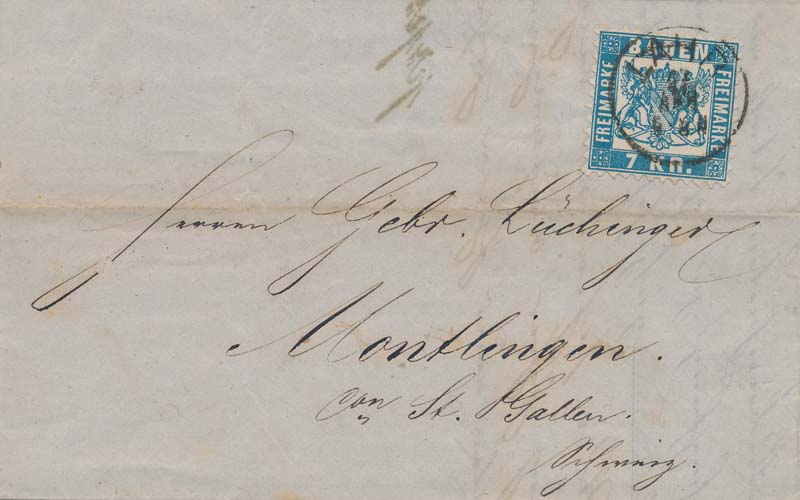 BADEN
FREIMARKE
FREIMARKE
7 KR.
Herren Gebr. Lüchinger
Montlingen.
Con St. Gallen.
Schweiz.